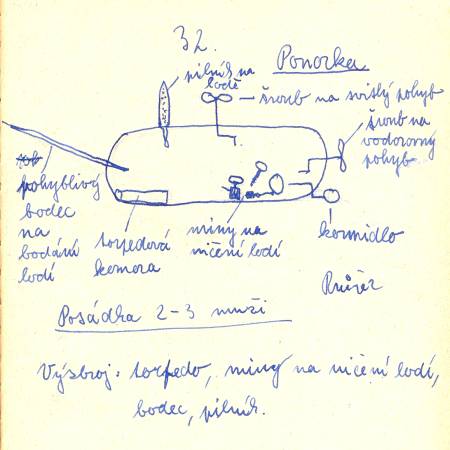 32.
Ponorka
pilník na
lodě
šroub na svislý pohyb
šroub na
vodorovný
pohyb
pohyblivý
bodec
na
bodání
lodí
torpedová
komora
miny na
ničení lodí
kormidlo
Průřez
Posádka 2-3 muži
Výsbroj: torpedo, miny na ničení lodí,
bodec, pilník.